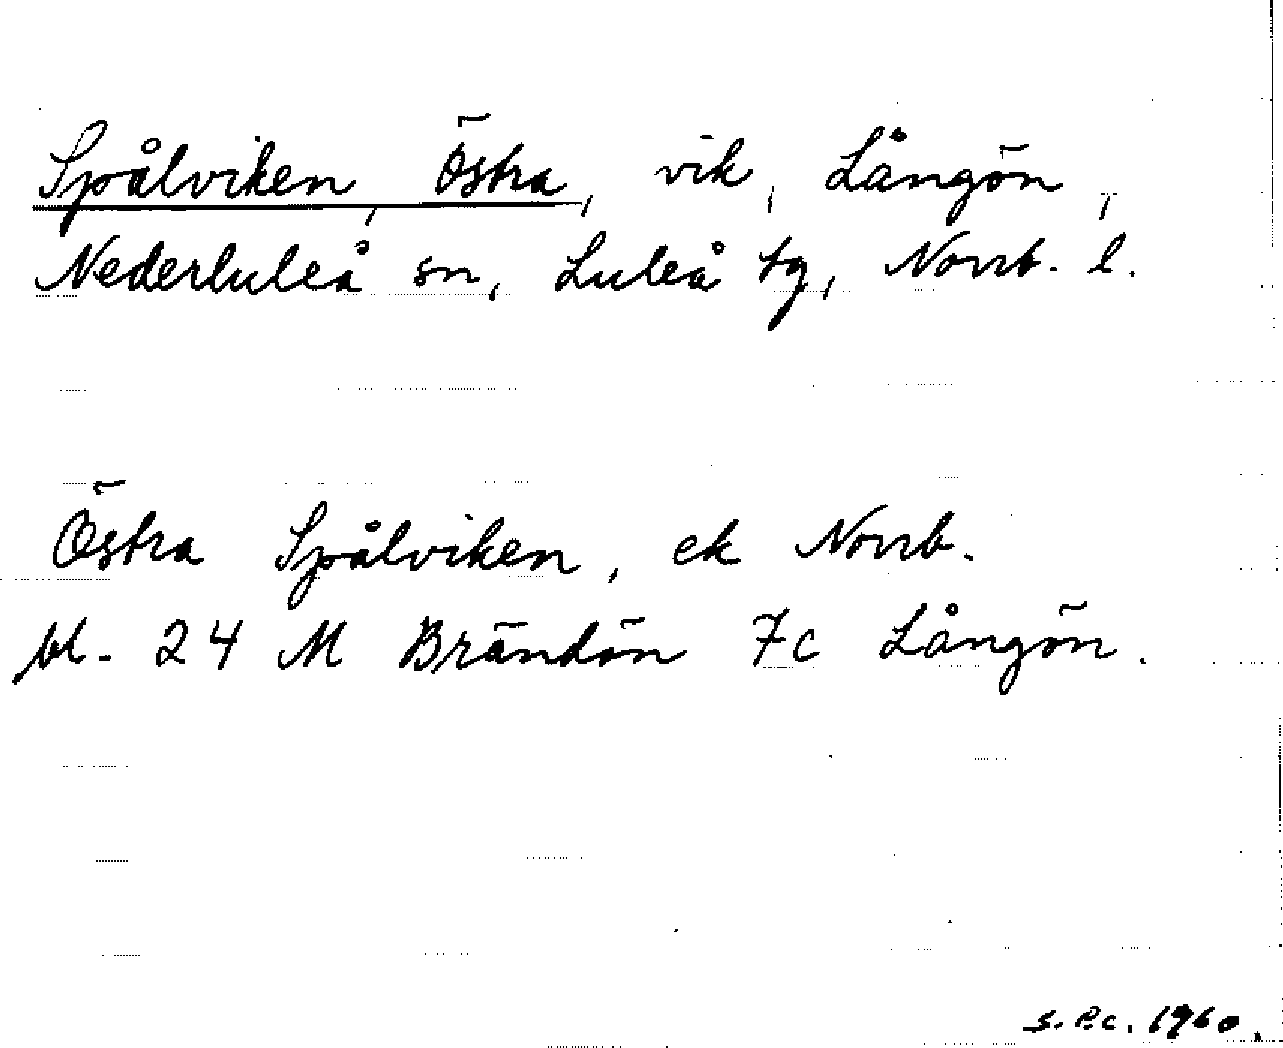 Spålviken, Östra, vik, Långön,
Nederluleå sn, Luleå tg, Norrb. l.
Östra Spålviken, ek Norrb.
bl. 24 M Brändön 7c Långön.
S.P.c. 1960.